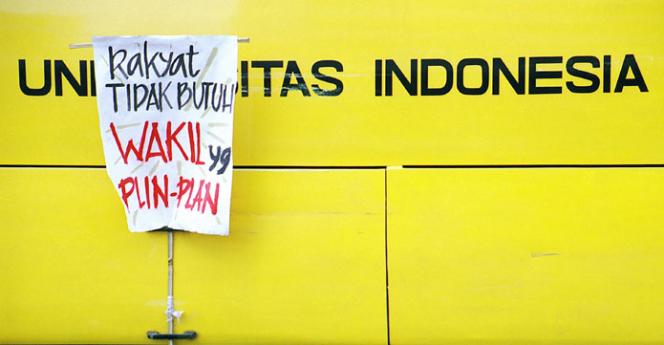 UNI ITAS INDONESIA
Rakyat
TIDAK BUTUH
WAKIL yg
PLIN-PLAN